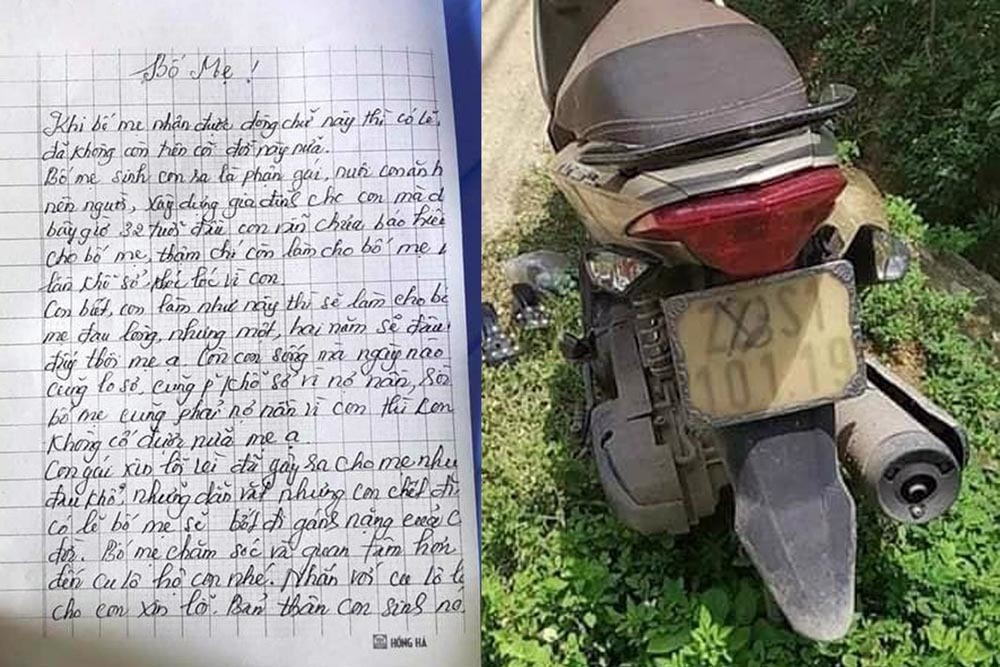 Bố Mẹ !
Khi bố mẹ nhận được dòng chữ này thì có lẽ,
đã không còn trên cõi đời này nữa.
Bố mẹ sinh con ra là phận gái, nuôi con ăn h
nên người, xây dựng gia đình cho con mà
bây giờ 32 tuổi đầu con vẫn chưa báo hiếu
cho bố mẹ, thậm chí còn làm cho bố mẹ
lần khổ sở, khóc lóc vì con.
Con biết, con làm như này thì sẽ làm cho bố
mẹ đau lòng, nhưng một, hai năm sẽ
thôi mẹ ạ. Còn con sống mà ngày nào
cũng lo sợ, cũng khổ sở vì nợ nần,
bố mẹ cũng phải nợ nần vì con thì con
không cố được nữa mẹ ạ.
Con gái xin lỗi đã gây sa cho mẹ
đau khổ, những dằn vặt nhưng con chết đi
có lẽ bố mẹ sẽ bớt đi gánh nặng của
đời. Bố mẹ chăm sóc và quan tâm hơn
đến cu lô hộ con nhé. Nhắn với cu lô
cho con xin lỗi. Bản thân con sinh nó
HỒNG HÀ
101 19